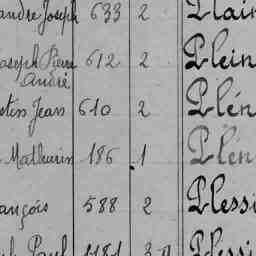 andre Joseph 633 2 Plain
Joseph Pierre 612 2 Plein
André
stin Jean 610 2 Plén
Mathurin 186 1 Plén
ançois 588 2 Plessi
Paul 1181 Plessi